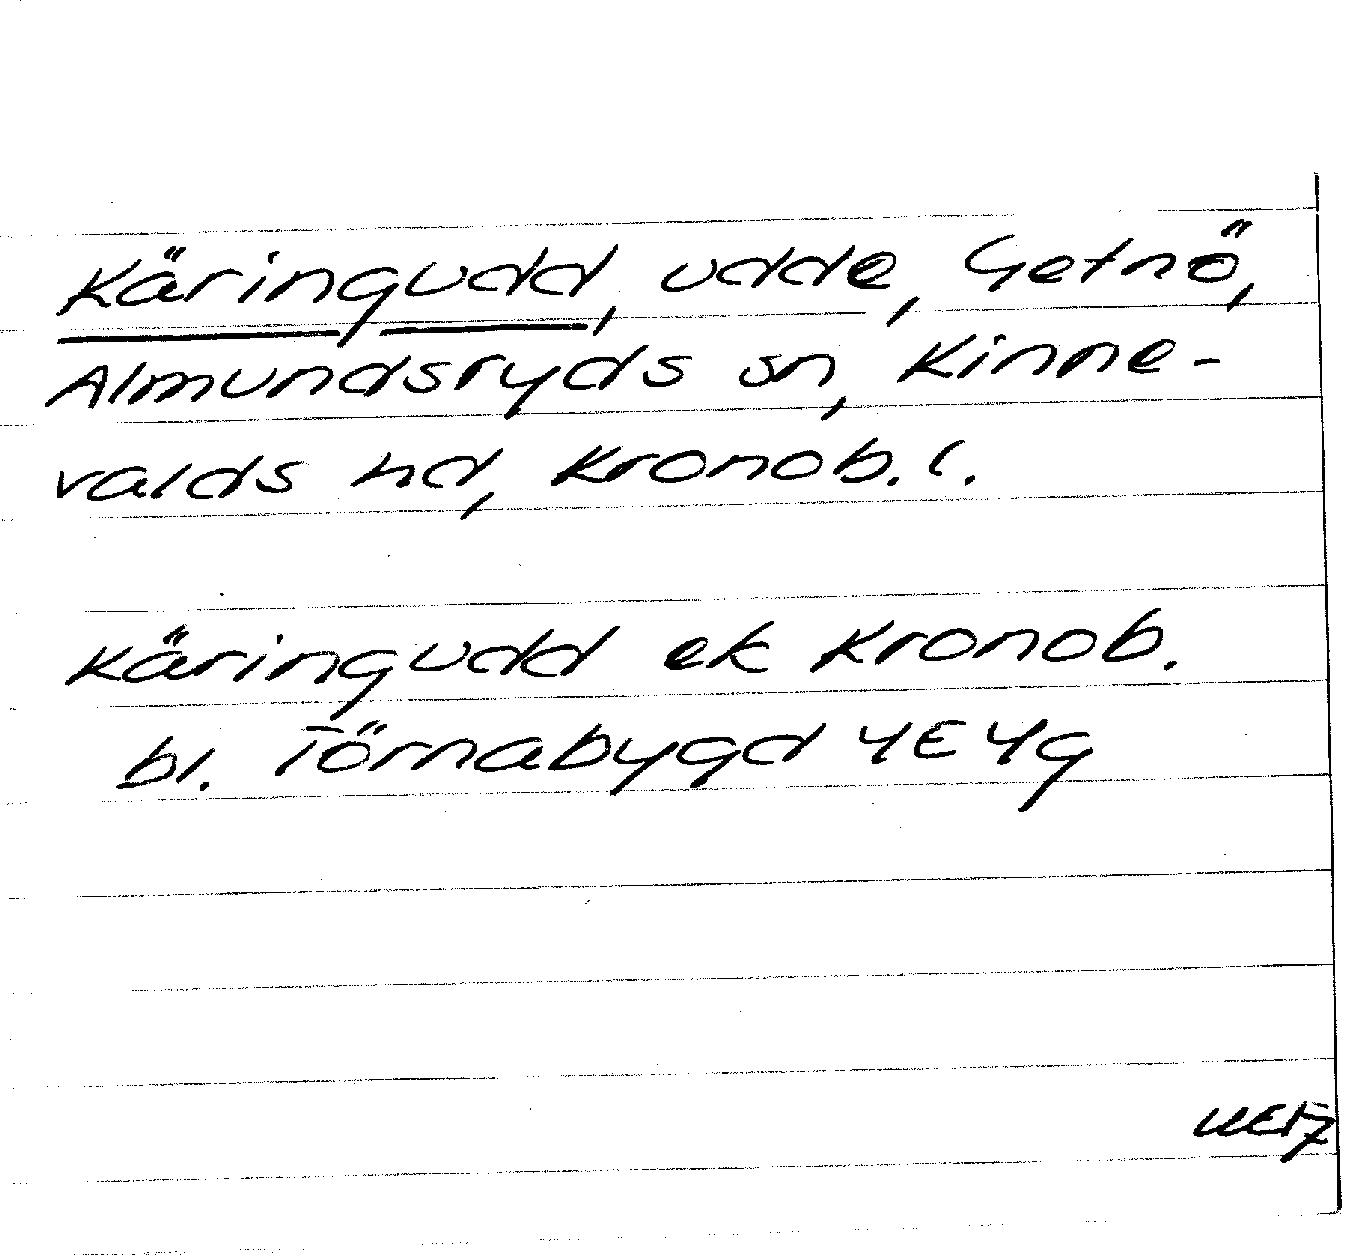 Käringudd, udde, Getnö,
Almundsryds sn, Kinne-
valds hd, Kronob. l.
Käringudd ek Kronob.
bl. Törnabygd 4E4g